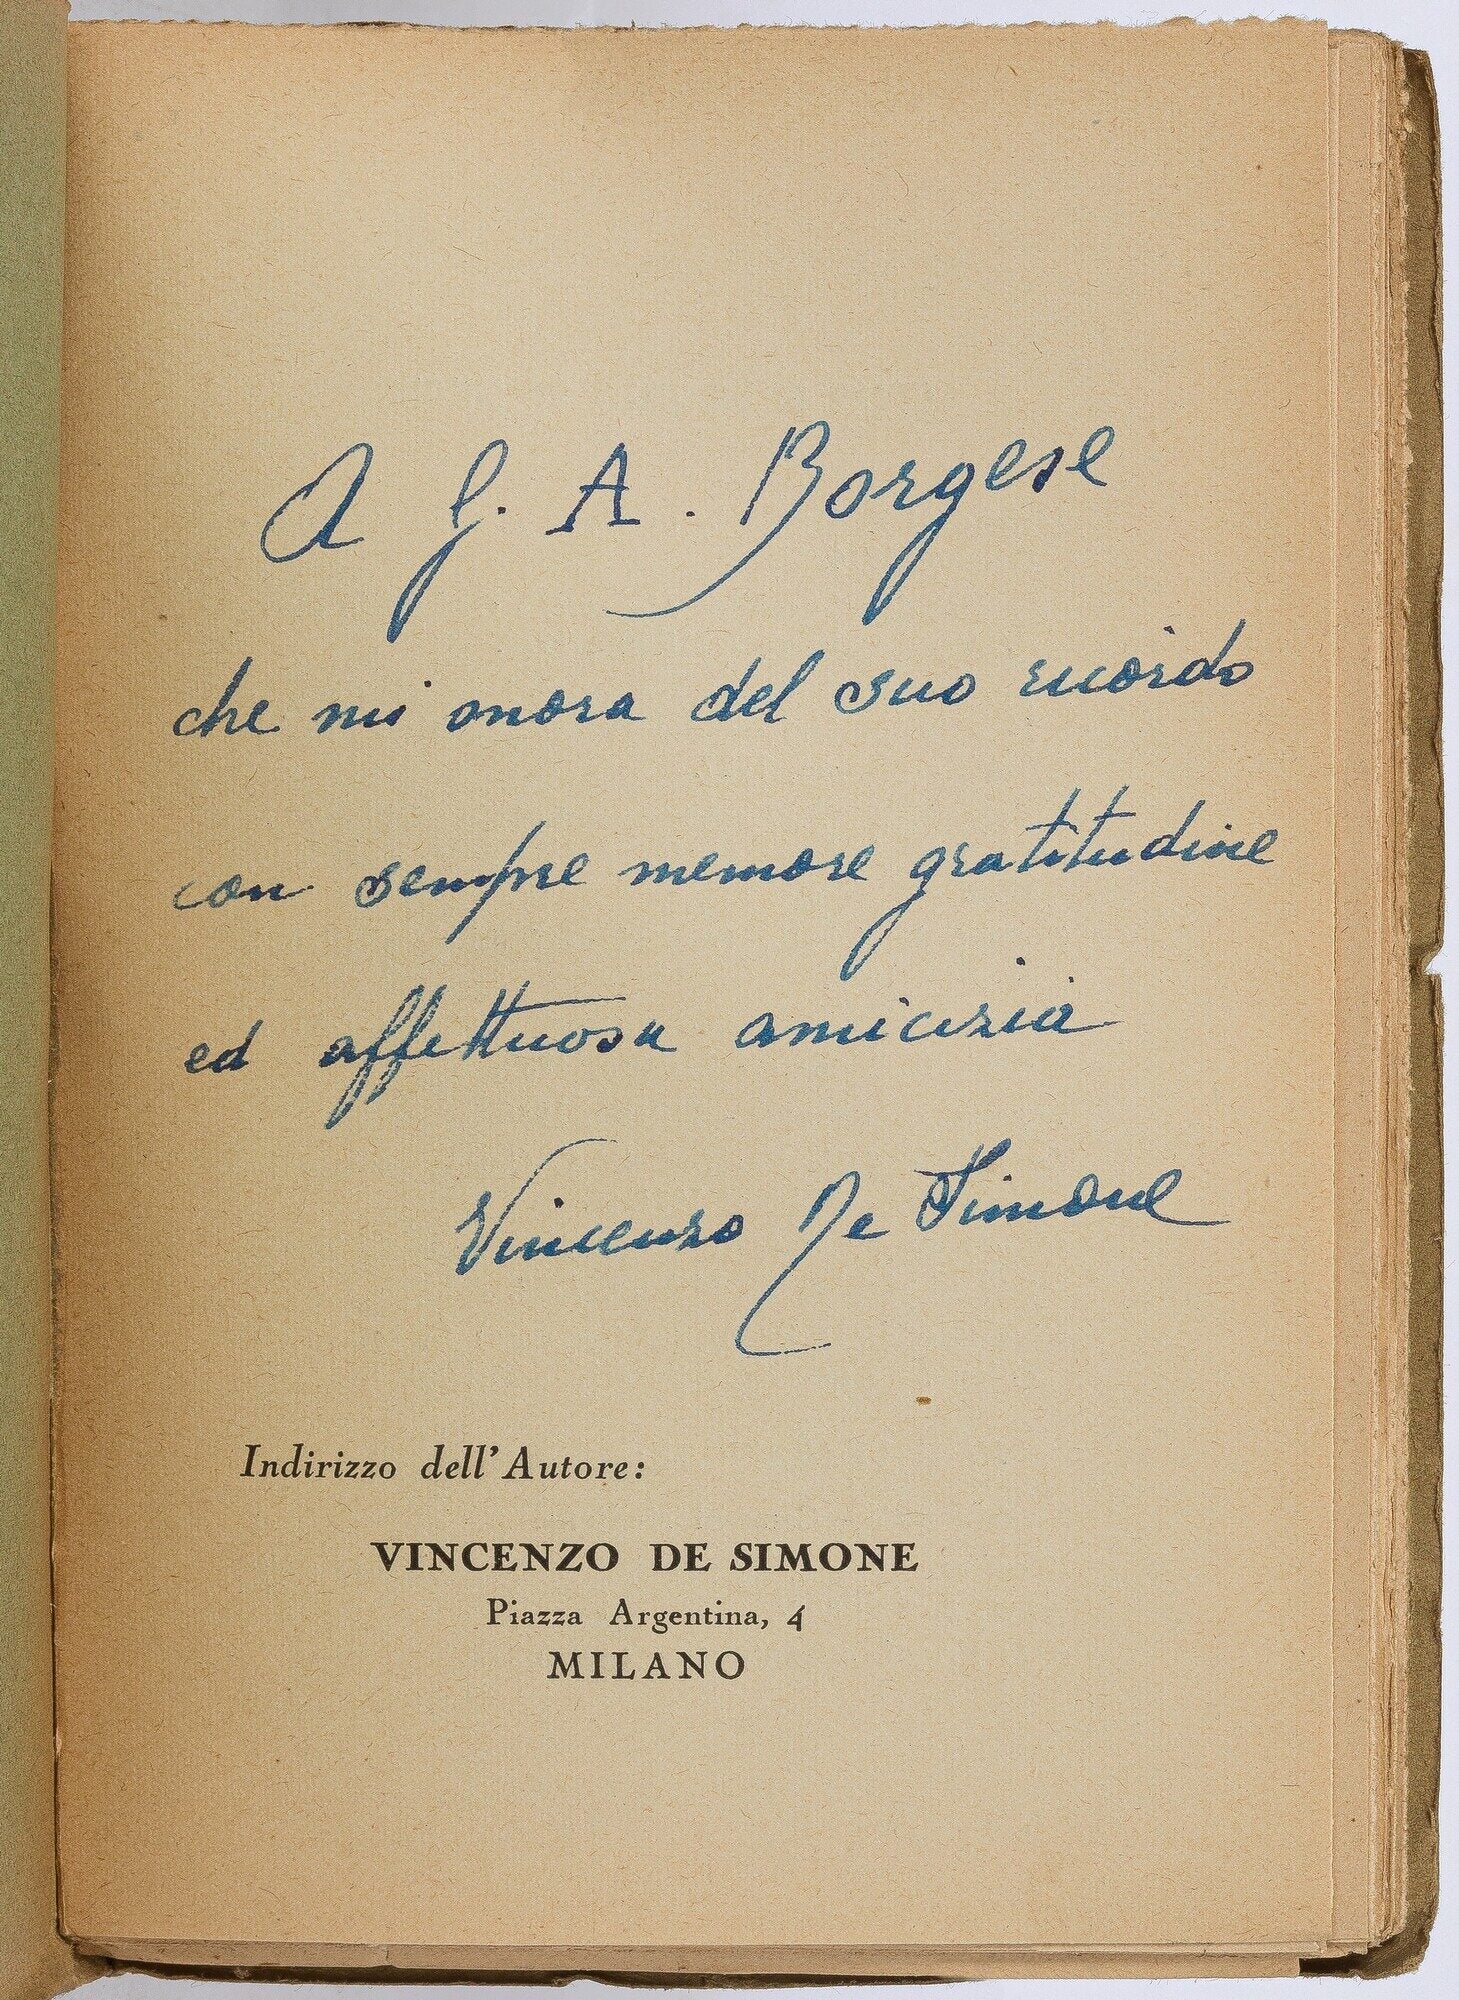 A G. A. Borgese
che mi onora del suo ricordo
con sempre memore gratitudine
ed affettuosa amicizia
Vincenzo De Simone
Indirizzo dell'Autore:
VINCENZO DE SIMONE
Piazza Argentina, 4
MILANO